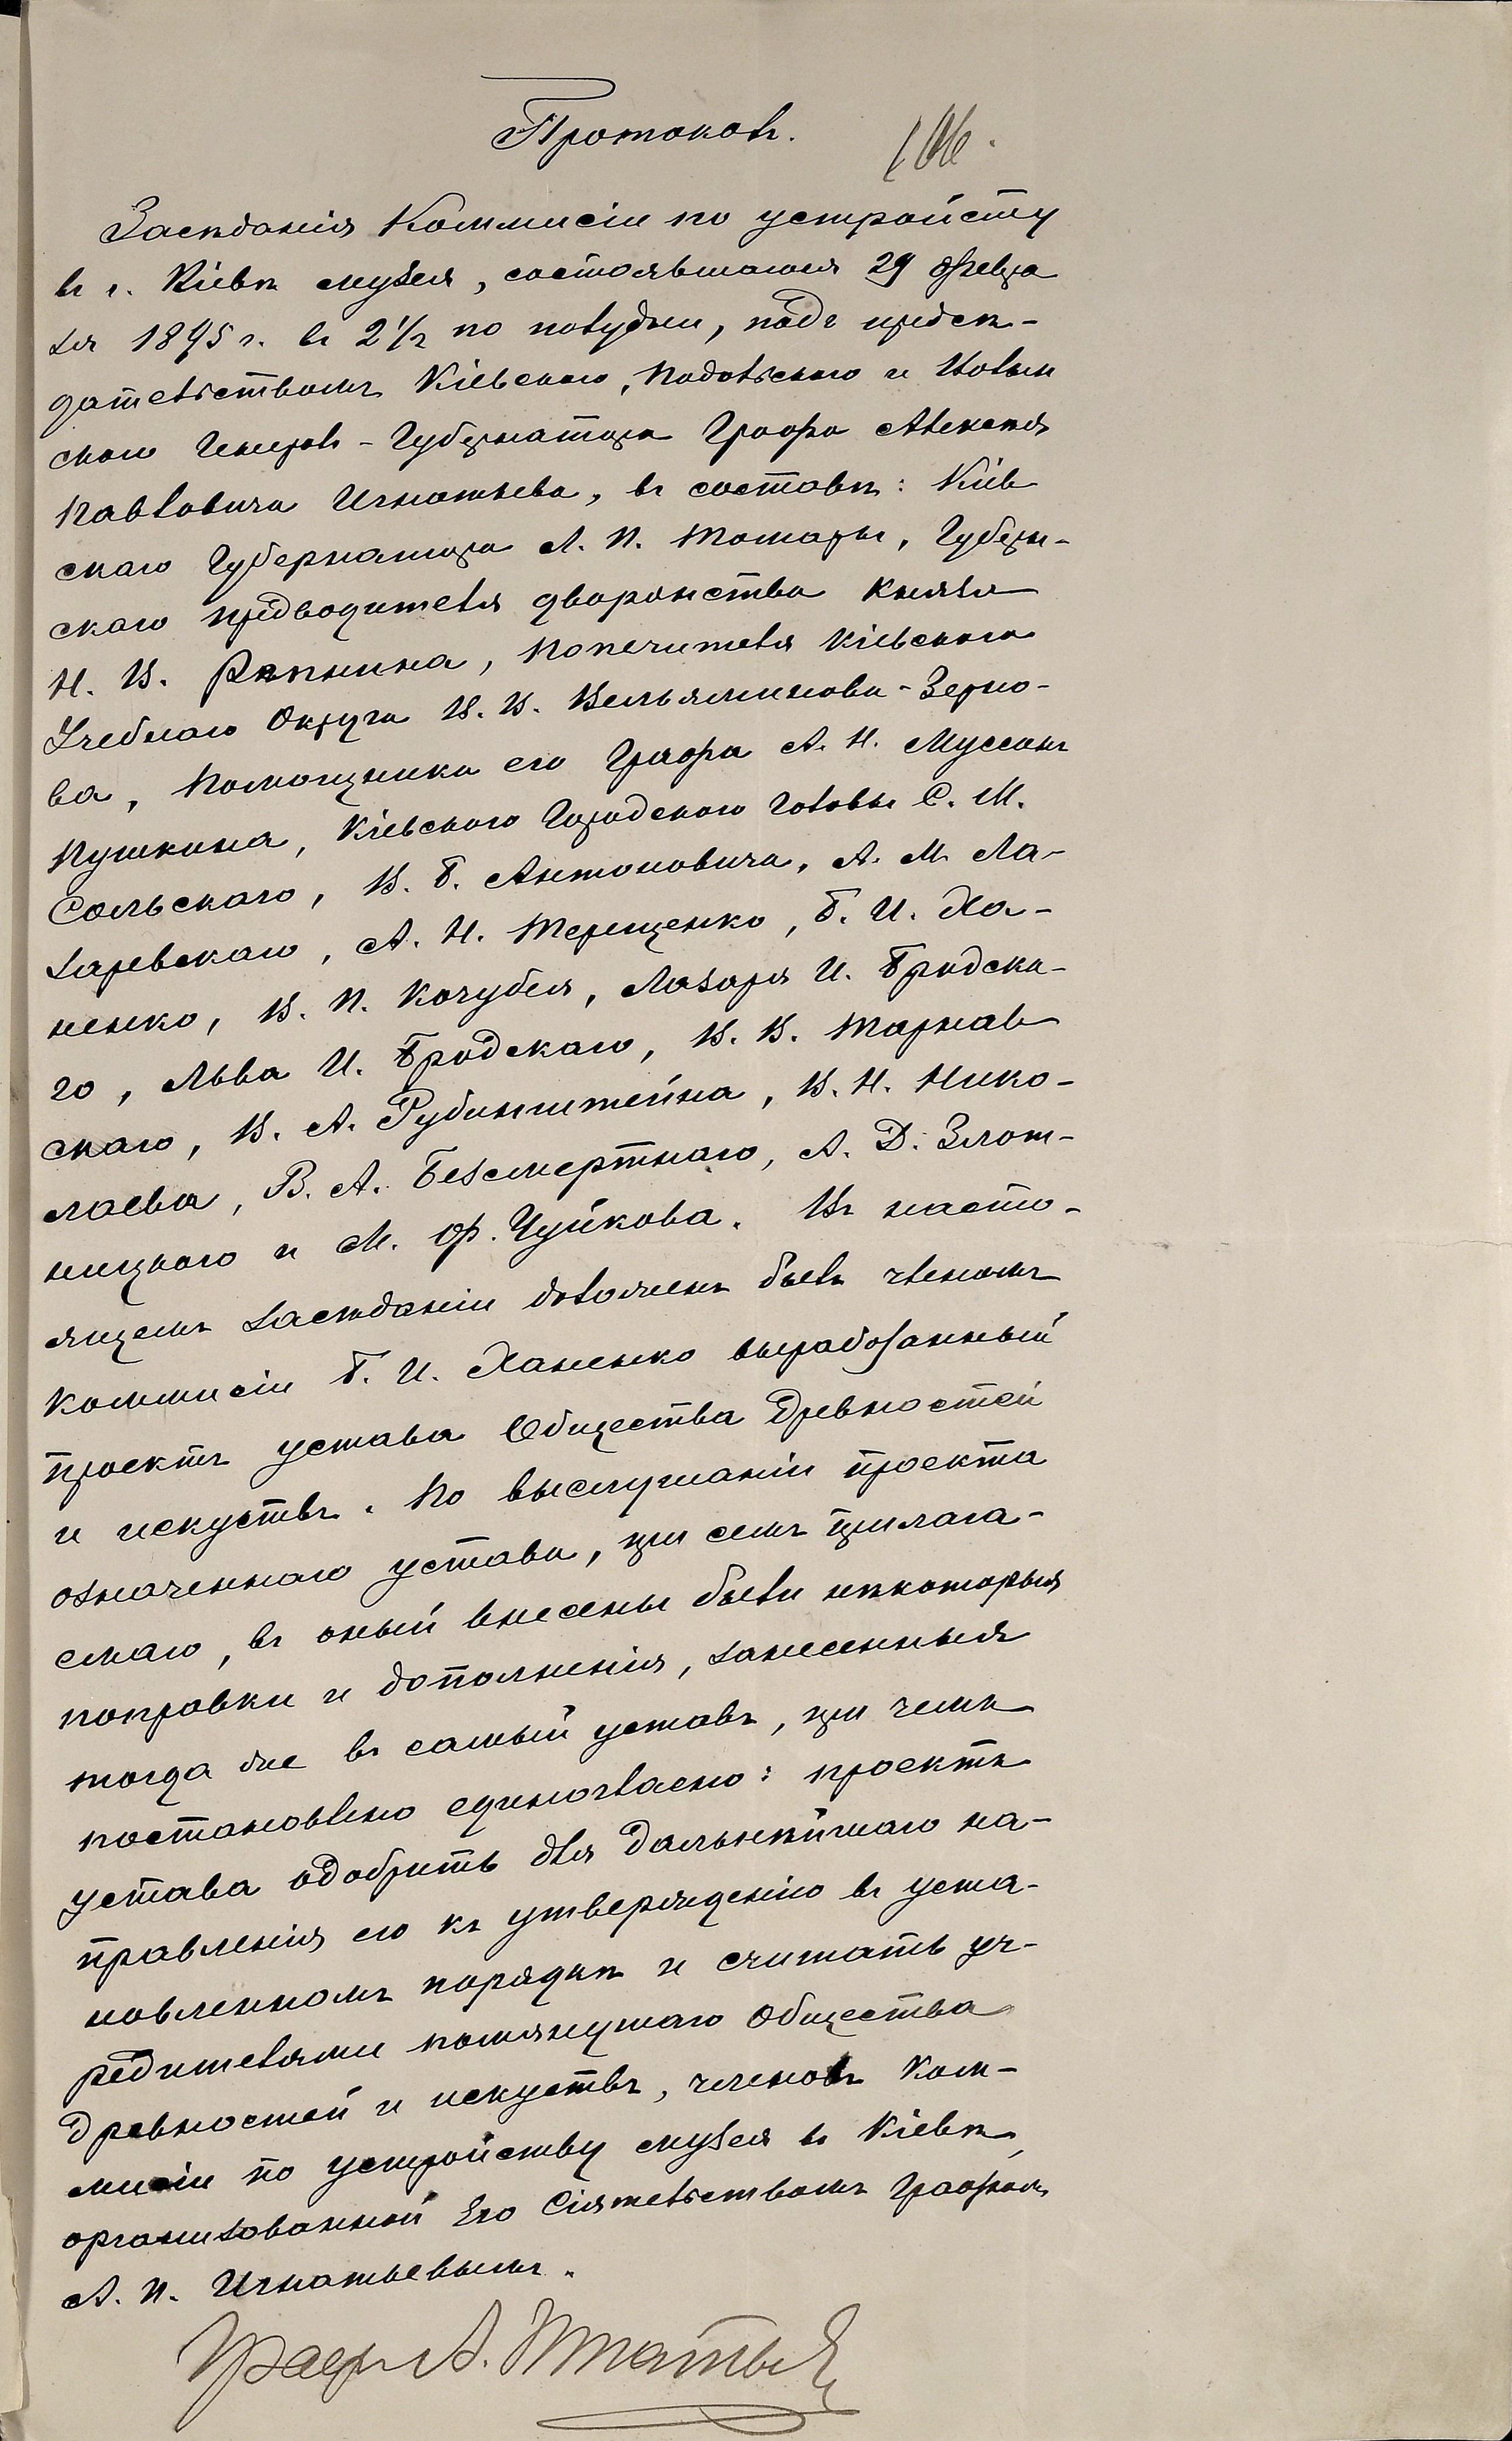 Протоколъ.
Засѣданія Коммисіи по устройству
въ г. Кіевѣ музея, состоявшагося 29 Февра
ля 1895 г. въ 2 1/2 по полудни, подъ предсѣ-
дательствомъ Кіевскаго, Подольскаго и Волын
скаго Генералъ-Губернатора Графа Алексѣя
Павловича Игнатьева, въ составѣ: Кіев
скаго Губернатора Л. П. Томары, Губерн-
скаго предводителя дворянства Князя
Н. В. Рѣпнина, Попечителя Кіевскаго
Учебнаго Округа В. В. Вельяминова-Зерно-
ва, Помощника его Графа А. И. Мусинъ
Пушкина, Кіевскаго Городскаго Головы С. М.
Сольскаго, В. Б. Антоновича, А. М. Ла-
заревскаго, А. Н. Терещенко, Б. И. Ха-
ненко, В. П. Кочубея, Лазаря И. Бродска-
го, Льва И. Бродскаго, В. В. Тарнав
скаго, В. А. Рубинштейна, В. Н. Нико-
лаева, В. А. Безсмертнаго, А. Д. Злот-
ницкаго и М. Ф. Чуйкова. Въ насто-
ящемъ засѣданіи доложенъ былъ членомъ
Коммисіи Б. И. Ханенко выработанный
проектъ устава Общества Древностей
и искуствъ. По выслушаніи проекта
означеннаго устава, при семъ прилага-
емаго, въ оный внесены были нѣкоторыя
поправки и дополненія, занесенныя
тогда же въ самый уставъ, при чемъ
постановлено единогласно: проектъ
устава одобрить для дальнѣйшаго на-
правленія его къ утвержденію въ уста-
новленномъ порядкѣ и считать уч-
редителями помянутаго Общества
Древностей и искуствъ, членовъ Ком-
мисіи по устройству музея въ Кіевѣ,
организованной Его Сіятельствомъ Графомъ
А. П. Игнатьевымъ.
Графъ А. Игнатьевъ